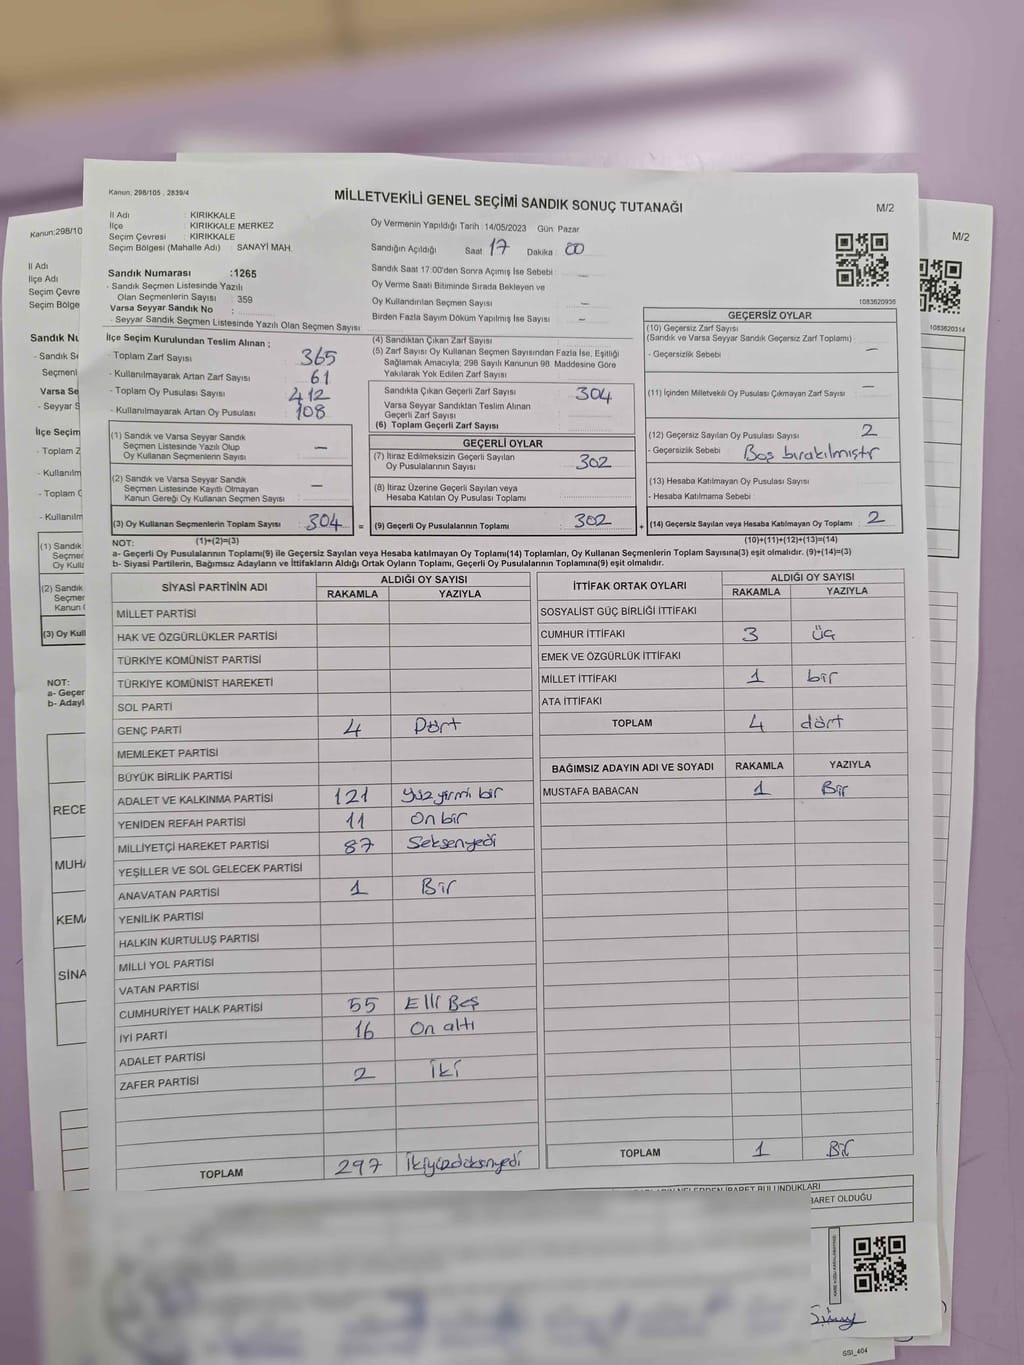 Kanun: 298/105 , 2839/4
MİLLETVEKİLİ GENEL SEÇİMİ SANDIK SONUÇ TUTANAĞI
M/2
İl Adı : KIRIKKALE
İlçe : KIRIKKALE MERKEZ
Seçim Çevresi : KIRIKKALE
Seçim Bölgesi (Mahalle Adı) : SANAYİ MAH.
Oy Vermenin Yapıldığı Tarih : 14/05/2023 Gün Pazar
Sandığın Açıldığı Saat 17 Dakika : 00
Sandık Saat 17:00'den Sonra Açımış İse Sebebi : –
Oy Verme Saati Bitiminde Sırada Bekleyen ve
Oy Kullandırılan Seçmen Sayısı : –
Birden Fazla Sayım Döküm Yapılmış İse Sayısı : –
1083620936
Sandık Numarası :1265
- Sandık Seçmen Listesinde Yazılı
Olan Seçmenlerin Sayısı : 359
Varsa Seyyar Sandık No :
- Seyyar Sandık Seçmen Listesinde Yazılı Olan Seçmen Sayısı
İlçe Seçim Kurulundan Teslim Alınan ;
- Toplam Zarf Sayısı : 365
- Kullanılmayarak Artan Zarf Sayısı : 61
- Toplam Oy Pusulası Sayısı : 412
- Kullanılmayarak Artan Oy Pusulası : 108
(1) Sandık ve Varsa Seyyar Sandık
Seçmen Listesinde Yazılı Olup
Oy Kullanan Seçmenlerin Sayısı : –
(2) Sandık ve Varsa Seyyar Sandık
Seçmen Listesinde Kayıtlı Olmayan
Kanun Gereği Oy Kullanan Seçmen Sayısı : –
(3) Oy Kullanan Seçmenlerin Toplam Sayısı : 304
(4) Sandıktan Çıkan Zarf Sayısı
(5) Zarf Sayısı Oy Kullanan Seçmen Sayısından Fazla İse, Eşitliği
Sağlamak Amacıyla; 298 Sayılı Kanunun 98. Maddesine Göre
Yakılarak Yok Edilen Zarf Sayısı :
Sandıkta Çıkan Geçerli Zarf Sayısı : 304
Varsa Seyyar Sandıktan Teslim Alınan
Geçerli Zarf Sayısı :
(6) Toplam Geçerli Zarf Sayısı :
GEÇERLİ OYLAR
(7) İtiraz Edilmeksizin Geçerli Sayılan
Oy Pusulalarının Sayısı : 302
(8) İtiraz Üzerine Geçerli Sayılan veya
Hesaba Katılan Oy Pusulası Toplamı :
= (9) Geçerli Oy Pusulalarının Toplamı : 302
GEÇERSİZ OYLAR
(10) Geçersiz Zarf Sayısı
(Sandık ve Varsa Seyyar Sandık Geçersiz Zarf Toplamı) :
- Geçersizlik Sebebi : –
(11) İçinden Milletvekili Oy Pusulası Çıkmayan Zarf Sayısı : –
(12) Geçersiz Sayılan Oy Pusulası Sayısı : 2
- Geçersizlik Sebebi : Boş bırakılmıştır
(13) Hesaba Katılmayan Oy Pusulası Sayısı :
- Hesaba Katılmama Sebebi :
+ (14) Geçersiz Sayılan veya Hesaba Katılmayan Oy Toplamı : 2
NOT: (1)+(2)=(3) (10)+(11)+(12)+(13)=(14)
a- Geçerli Oy Pusulalarının Toplamı(9) ile Geçersiz Sayılan veya Hesaba katılmayan Oy Toplamı(14) Toplamları, Oy Kullanan Seçmenlerin Toplam Sayısına(3) eşit olmalıdır. (9)+(14)=(3)
b- Siyasi Partilerin, Bağımsız Adayların ve İttifakların Aldığı Ortak Oyların Toplamı, Geçerli Oy Pusulalarının Toplamına(9) eşit olmalıdır.
SİYASİ PARTİNİN ADI ALDIĞI OY SAYISI
RAKAMLA YAZIYLA
MİLLET PARTİSİ
HAK VE ÖZGÜRLÜKLER PARTİSİ
TÜRKİYE KOMÜNİST PARTİSİ
TÜRKİYE KOMÜNİST HAREKETİ
SOL PARTİ
GENÇ PARTİ 4 Dört
MEMLEKET PARTİSİ
BÜYÜK BİRLİK PARTİSİ
ADALET VE KALKINMA PARTİSİ 121 Yüz yirmi bir
YENİDEN REFAH PARTİSİ 11 On bir
MİLLİYETÇİ HAREKET PARTİSİ 87 Seksenyedi
YEŞİLLER VE SOL GELECEK PARTİSİ
ANAVATAN PARTİSİ 1 Bir
YENİLİK PARTİSİ
HALKIN KURTULUŞ PARTİSİ
MİLLİ YOL PARTİSİ
VATAN PARTİSİ
CUMHURİYET HALK PARTİSİ 55 Elli Beş
İYİ PARTİ 16 On altı
ADALET PARTİSİ
ZAFER PARTİSİ 2 İki
TOPLAM 297
İTTİFAK ORTAK OYLARI ALDIĞI OY SAYISI
RAKAMLA YAZIYLA
SOSYALİST GÜÇ BİRLİĞİ İTTİFAKI
CUMHUR İTTİFAKI 3 üç
EMEK VE ÖZGÜRLÜK İTTİFAKI
MİLLET İTTİFAKI 1 bir
ATA İTTİFAKI
TOPLAM 4 dört
BAĞIMSIZ ADAYIN ADI VE SOYADI RAKAMLA YAZIYLA
MUSTAFA BABACAN 1 Bir
TOPLAM 1 Bir
BULUNDUKLARI
İBARET OLDUĞU
SSI_404
Kanun:298/10
M/2
1083620314
İl Adı
İlçe Adı
Seçim Çevre
Seçim Bölge
Sandık Nu
- Sandık Se
Seçmenl
Varsa Se
- Seyyar S
İlçe Seçim
- Toplam Z
- Kullanılm
- Toplam O
- Kullanılm
(1) Sandık
Seçmer
Oy Kulla
(2) Sandık
Seçmer
Kanun G
(3) Oy Kull
NOT:
a- Geçer
b- Adayl
RECE
MUHA
KEMA
SİNA